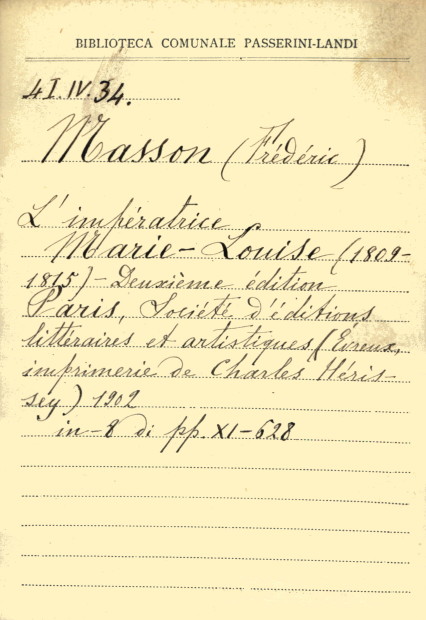 BIBLIOTECA COMUNALE PASSERINI-LANDI
4 I. IV. 34.
Masson (Frédéric)
L'impératrice
Marie-Louise (1809-
1815) - Deuxième édition
Paris, Société d'éditions
littéraires et artistiques (Évreux,
imprimerie de Charles Héris-
sey) 1902
in-8 di pp. XI-628